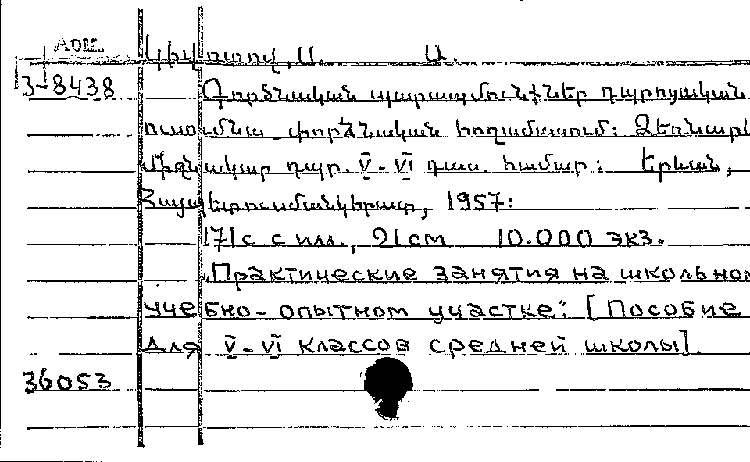 Կիվոտով, Ս. Ա.
3-8438 Գործնական պարապմունքներ դպրոցական
ուսումնա-փորձնական հողամասում: Ձեռնարկ
միջնակարգ դպր. V-VI դաս. համար: Երևան,
Հայպետուսմանկհրատ, 1957:
171 с с илл., 21 см 10.000 экз.
Практические занятия на школьном
учебно-опытном участке: [Пособие
для V-VI классов средней школы].
36053